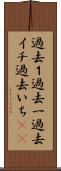 過去１過去一過去
イチ過去いち